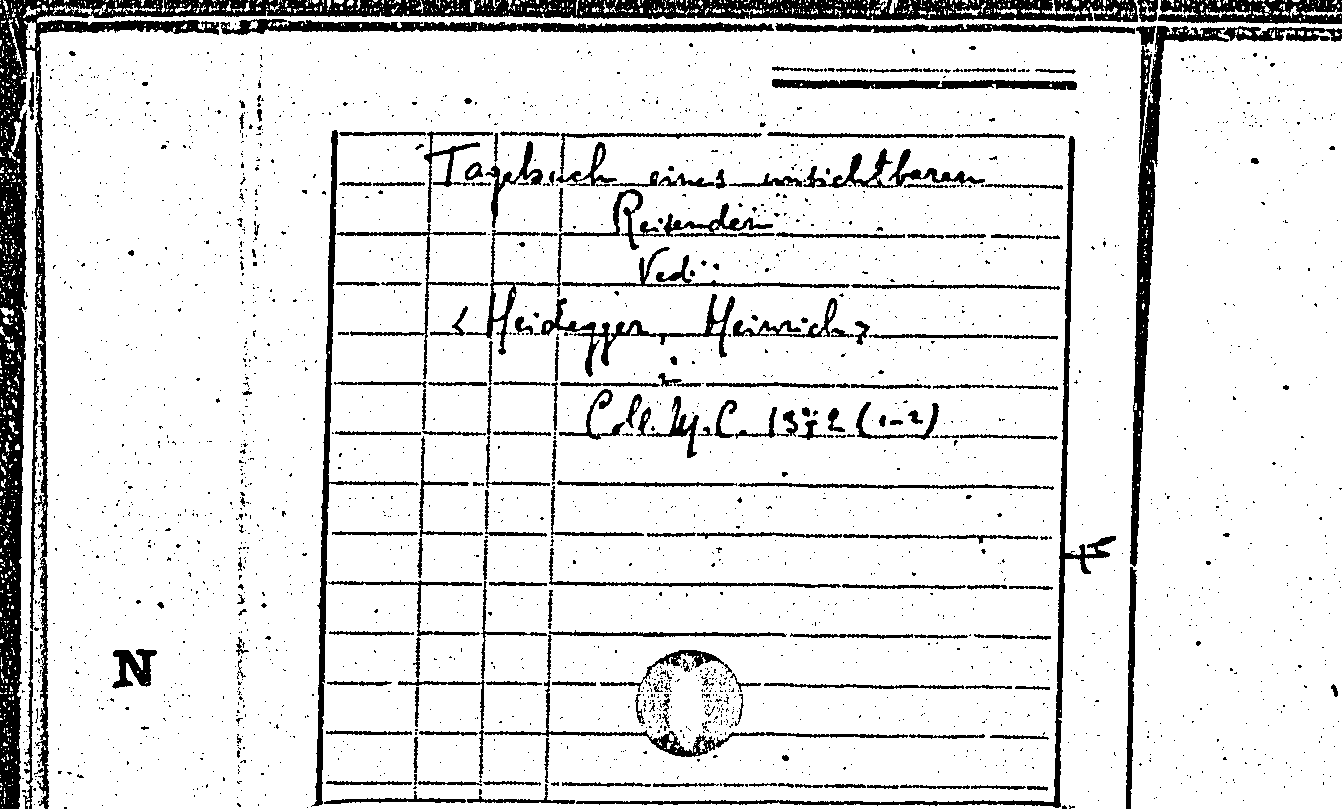 Tagebuch eines unsichtbaren
Reisenden
Vedi:
< Heidegger, Heinrich>
Coll. M.C. (1-2)
N